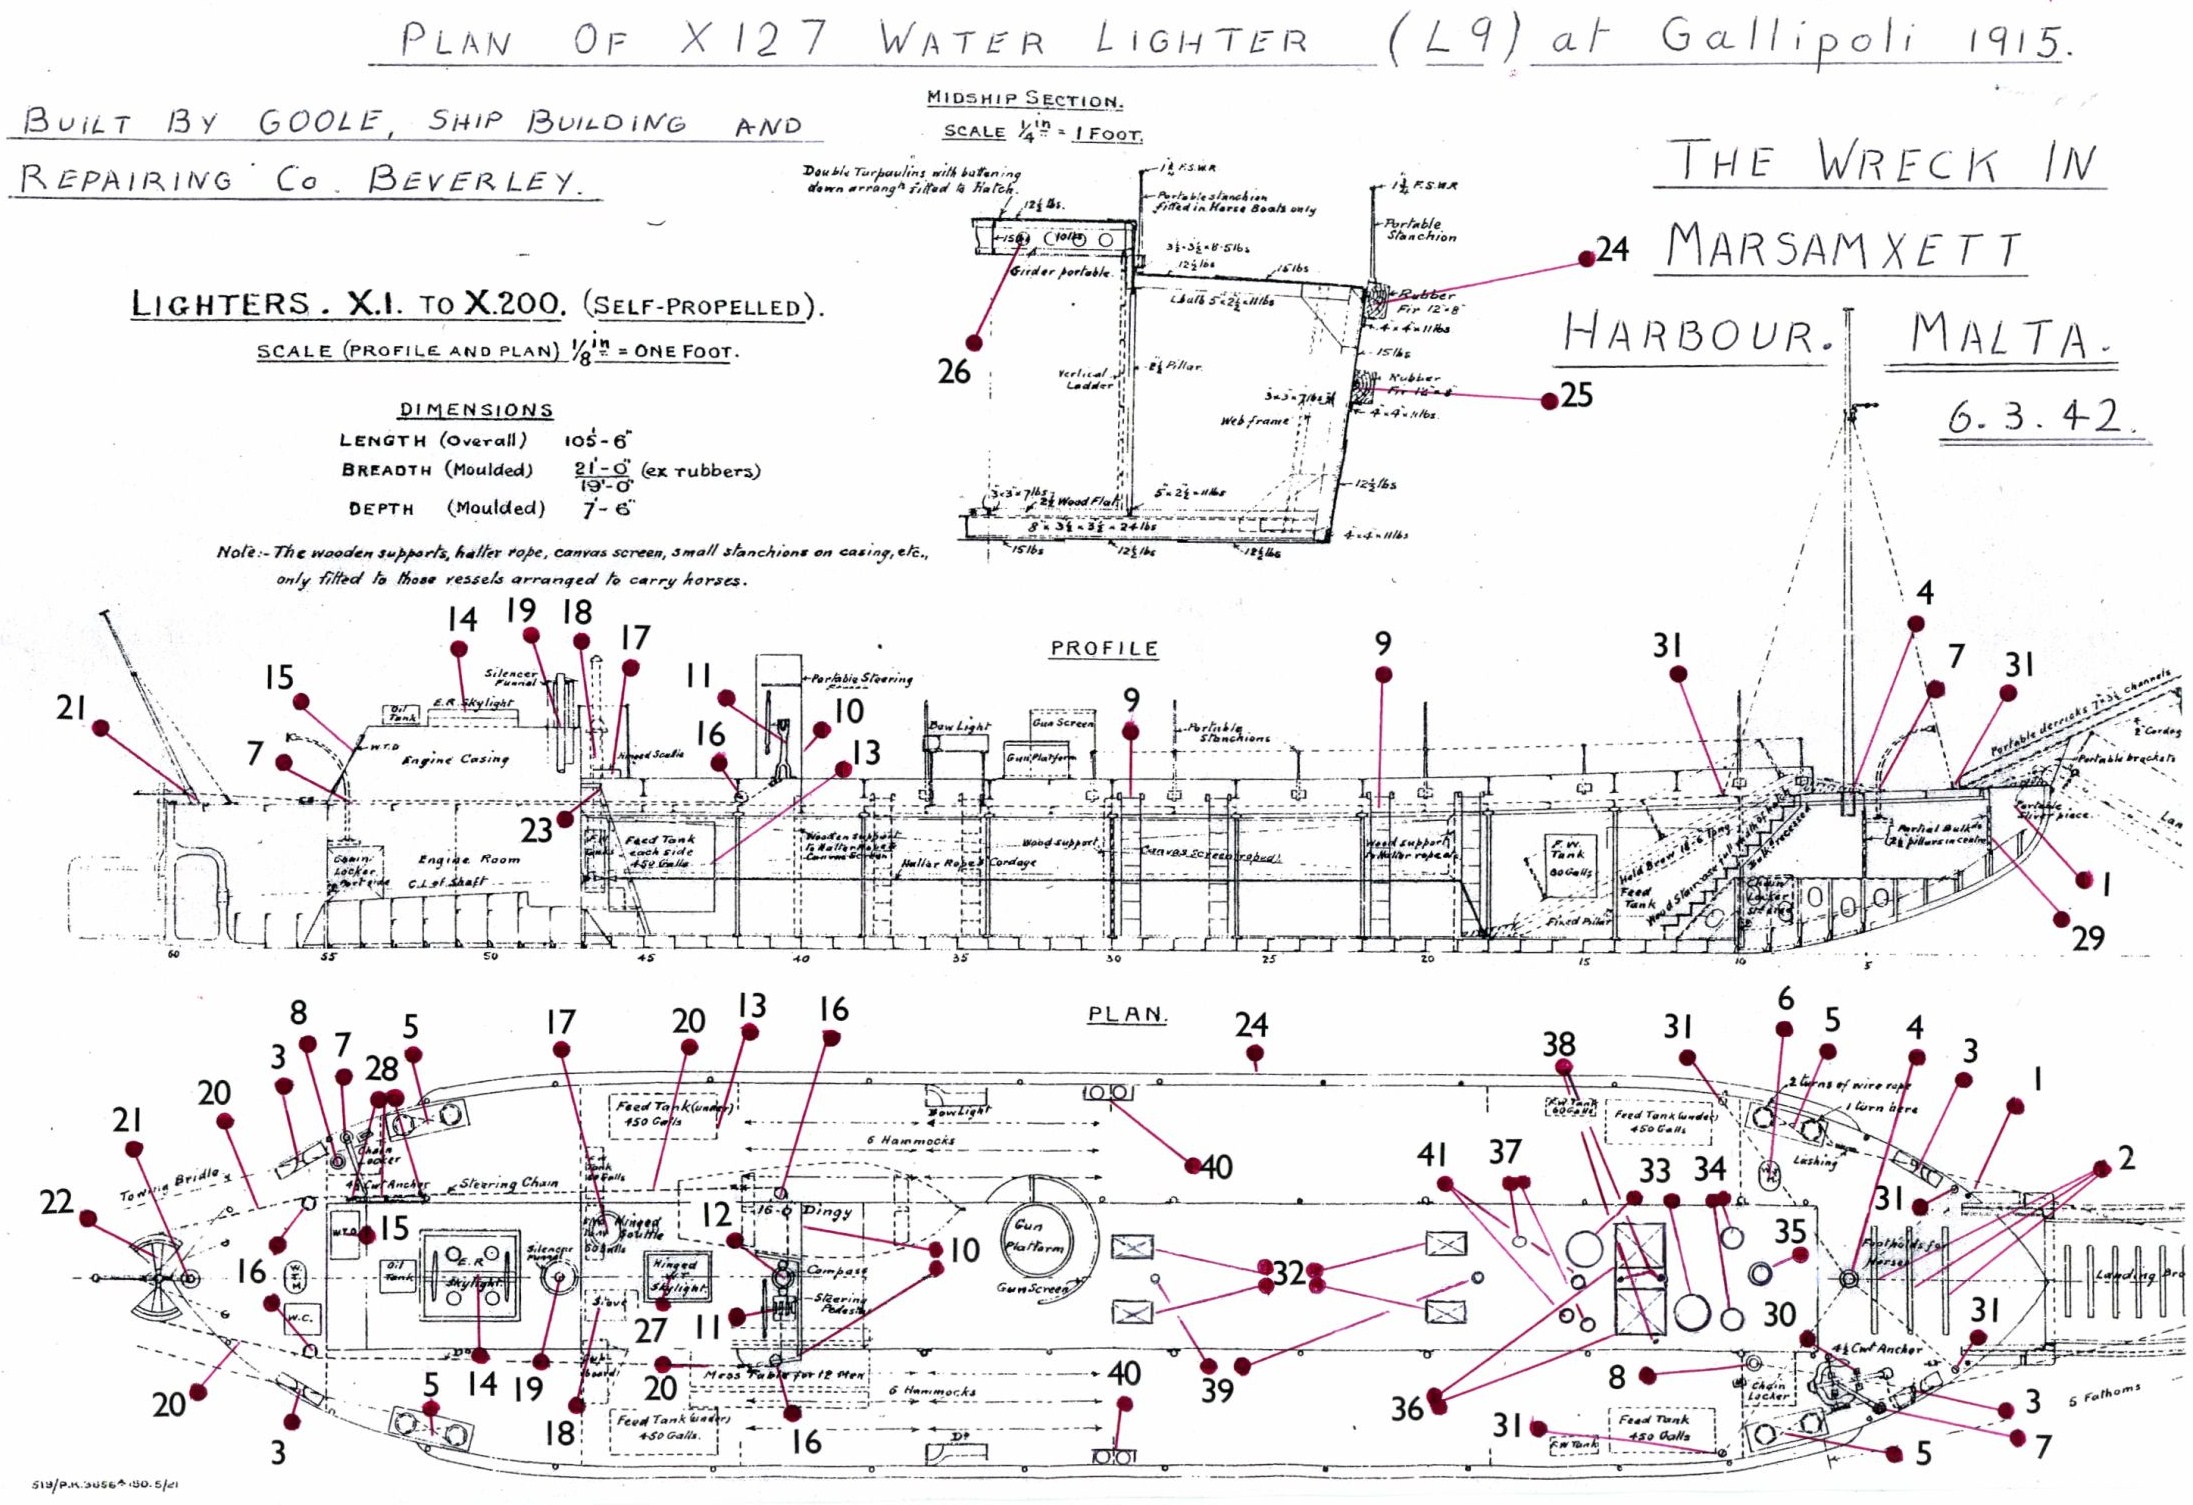 PLAN OF X127 WATER LIGHTER (L9) at Gallipoli 1915.
BUILT BY GOOLE, SHIP BUILDING AND
REPAIRING Co. BEVERLEY.
MIDSHIP SECTION.
SCALE 1/4 in = 1 FOOT.
THE WRECK IN
MARSAMXETT
HARBOUR. MALTA.
6.3.42.
LIGHTERS. X.1. TO X.200. (SELF-PROPELLED).
SCALE (PROFILE AND PLAN) 1/8 in = ONE FOOT.
DIMENSIONS
LENGTH (Overall) 105'-6"
BREADTH (Moulded) 21'-0" (ex rubbers)
19'-0"
DEPTH (Moulded) 7'-6"
Note:- The wooden supports, halter rope, canvas screen, small stanchions on casing, etc.,
only fitted to those vessels arranged to carry horses.
Double Tarpaulins with battening
down arrangts fitted to Hatch.
12½ lbs.
1¼ F.S.W.R
Portable stanchion
fitted in Horse Boats only
1¼ F.S.W.R
Portable
Stanchion
24
15 lbs
10 lbs
3½ × 3½ × 8·5 lbs
12½ lbs
15 lbs
Girder portable.
bulb 5 × 2½ × 11 lbs
Rubber
Fir 12" × 8"
4 × 4 × 11 lbs
26
15 lbs
2½ Pillar.
Vertical
Ladder
Rubber
Fir 12" × 8"
25
3 × 3 × 7 lbs
4 × 4 × 11 lbs.
Web frame
12½ lbs
3 × 3 × 7 lbs
2½ Wood Flat
5 × 2½ × 11 lbs
8 × 3½ × 3½ × 24 lbs
4 × 4 × 11 lbs
15 lbs
12½ lbs
12½ lbs
PROFILE
14
19
18
17
9
31
4
7
31
21
15
11
16
10
13
9
7
23
Silencer
Funnel
Oil
Tank
E.R. Skylight
W.T.D
Engine Casing
Hinged Scuttle
Portable Steering
Bow Light
Gun Screen
Gun Platform
Portable
Stanchions
Portable derricks 7" × 3½ channels
Portable brackets
Portable
1
29
Chain
Locker
Port side
Engine Room
C.L of Shaft
Feed Tank
each side
450 Galls.
Wooden support
To Halter Rope &
Canvas Screen
Halter Rope 3" Cordage
Wood support
Wood support
To Halter rope
F.W.
Tank
60 Galls
Feed
Tank
Fixed Pillar
Chain
Locker
60
55
50
45
40
35
30
25
20
15
10
5
PLAN.
8
3
7
28
5
17
20
13
16
24
38
31
6
5
4
3
1
21
20
22
Towing Bridle
Chain
Locker
4½ Cwt Anchor
Steering Chain
Feed Tank (under)
450 Galls
Bow Light
6 Hammocks
40
F.W Tank
60 Galls
Feed Tank (under)
450 Galls
2 turns of wire rope
1 turn here
Lashing
2
31
41
37
33
34
35
16
15
W.T.D
Oil
Tank
E.R
Skylight
Silencer
Funnel
Hinged
Scuttle
60 Galls
Hinged
W.T
Skylight
Stove
12
16-0 Dingy
Compass
Steering
Pedestal
10
11
Gun
Platform
Gun Screen
32
Footholds for
Horses
Landing Bro
W.C.
27
30
31
20
3
5
14
19
18
20
Mess Table for 12 Men
6 Hammocks
Feed Tank (under)
450 Galls.
16
Do
40
39
36
31
8
F.W Tank
Feed Tank
450 Galls
4½ Cwt Anchor
Chain
Locker
3
7
5
5 Fathoms